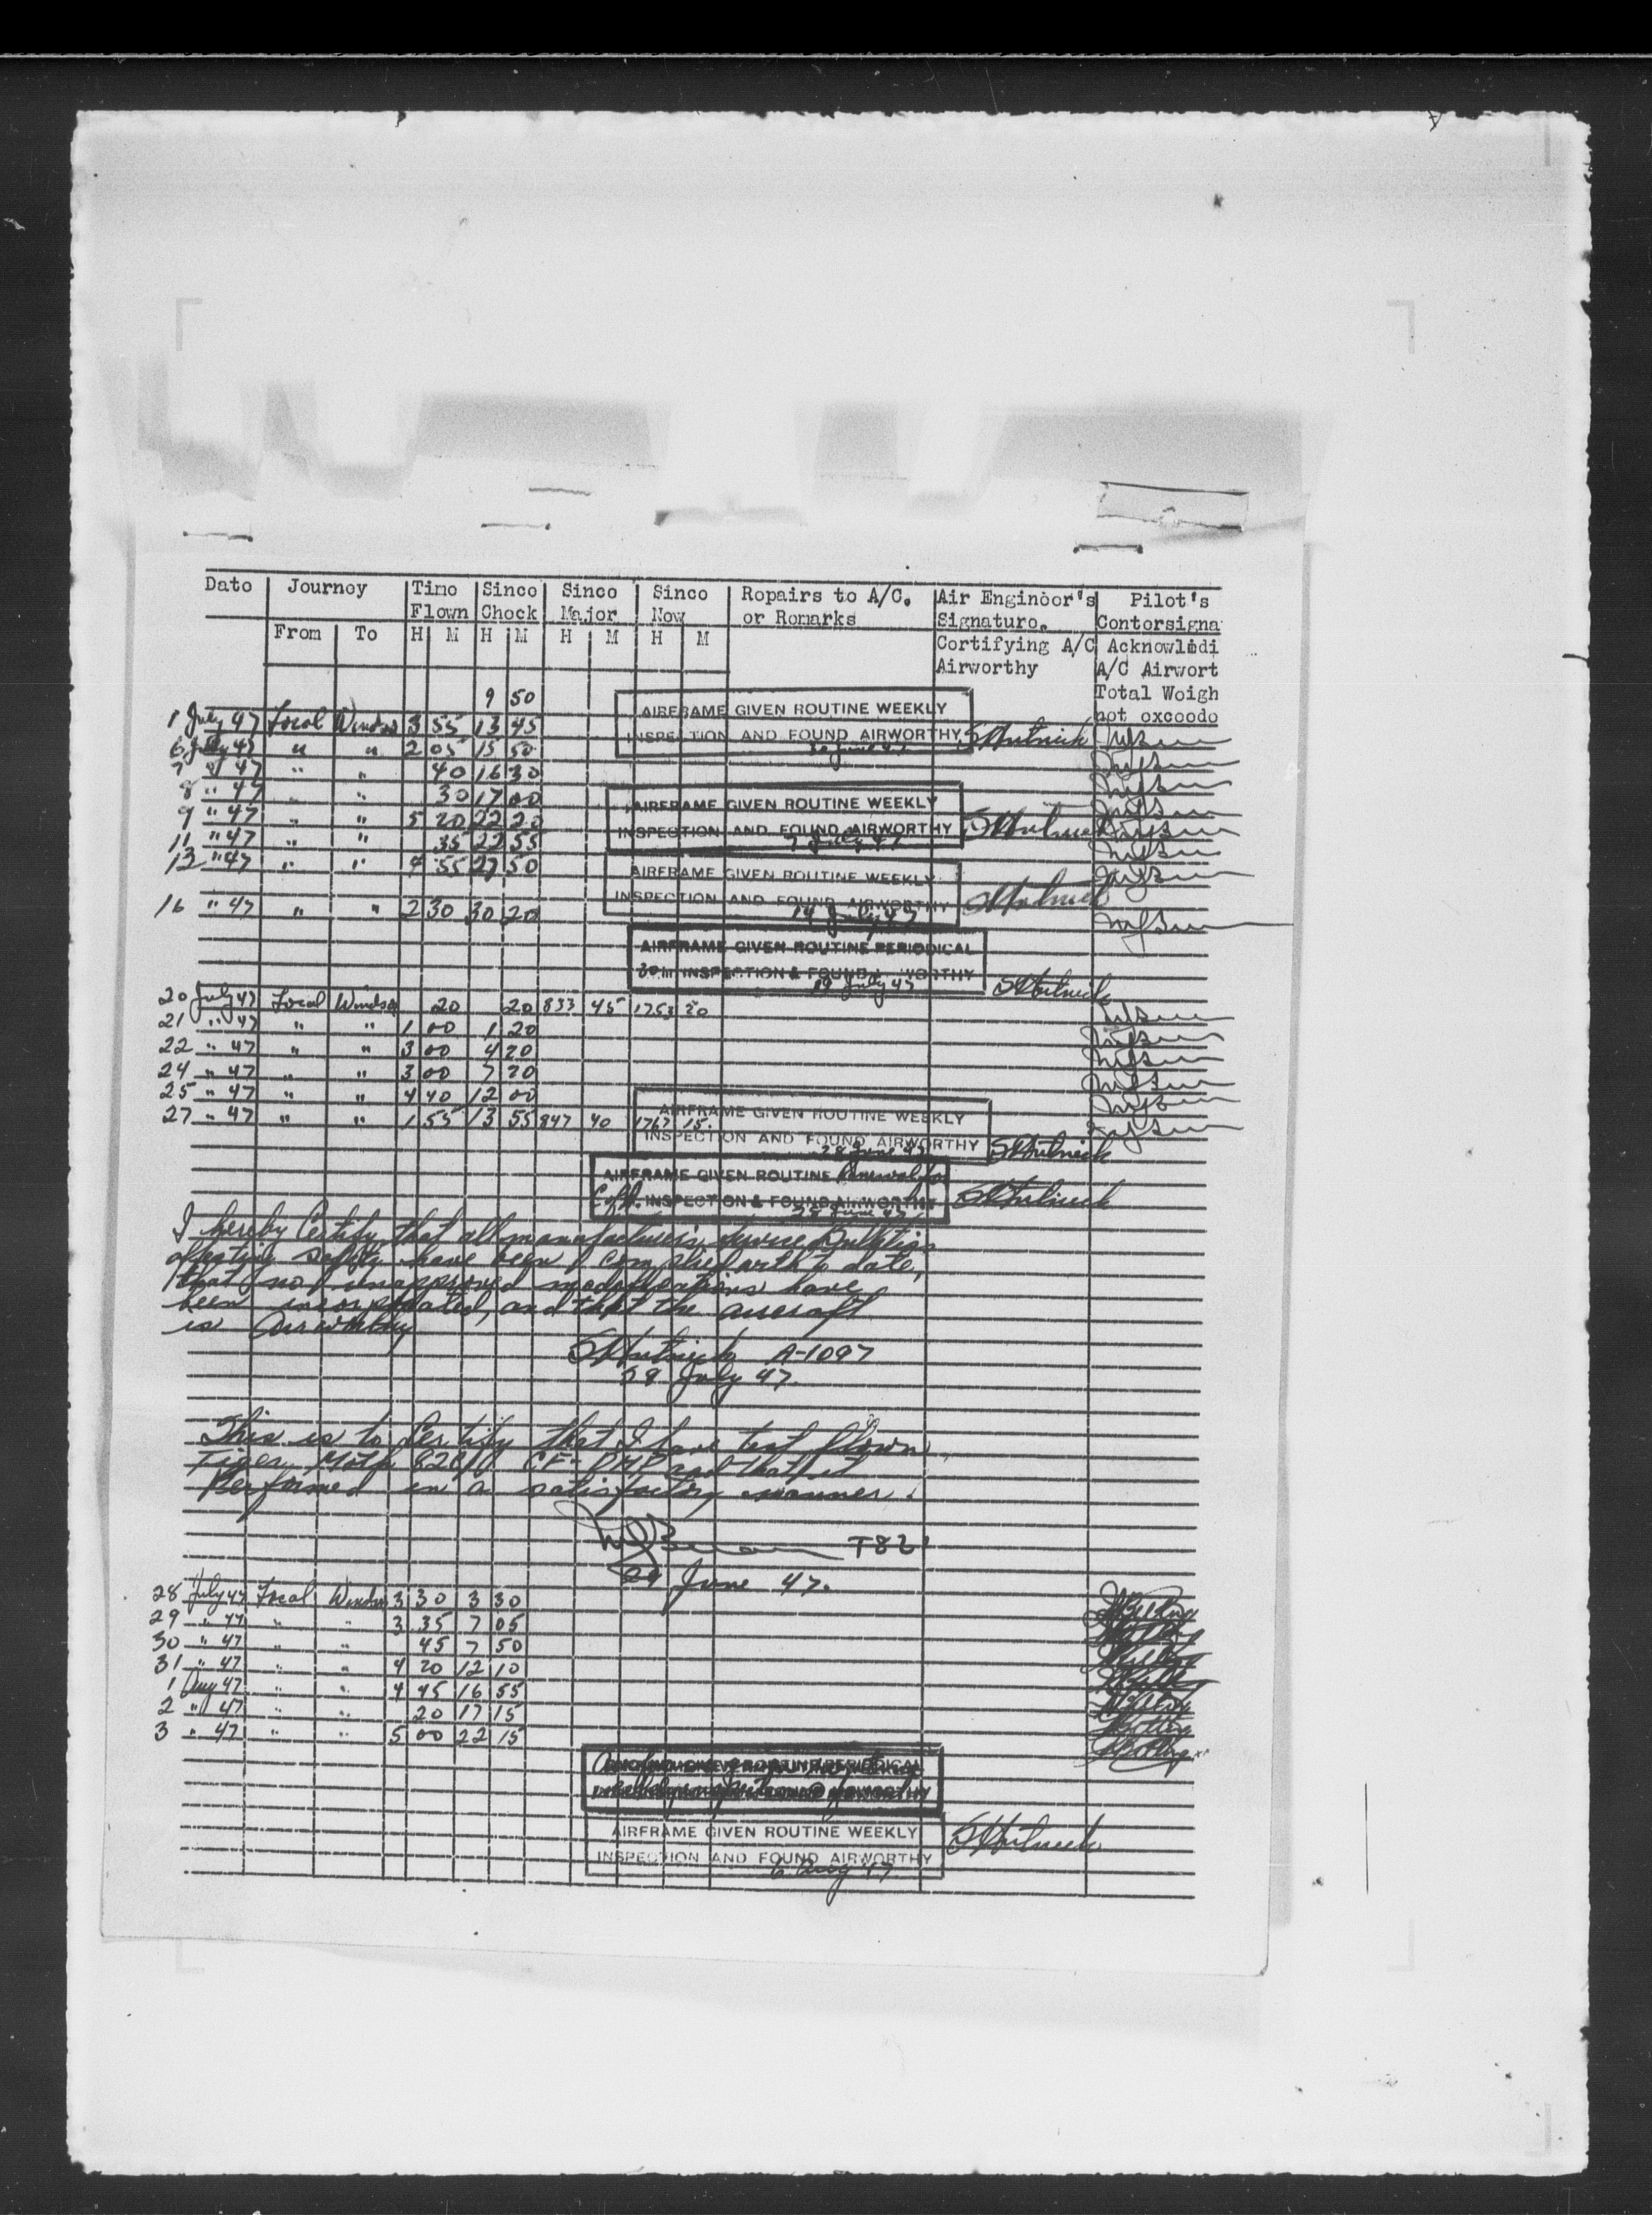 Dato Journoy Timo Sinco Sinco Sinco Ropairs to A/C. Air Enginoor's Pilot's
Flown Chock Major Now or Romarks Signaturo. Contorsigna
From To H M H M H M H M Cortifying A/C Acknowlidi
Airworthy A/C Airwort
9 50 Total Woigh
AIRFRAME GIVEN ROUTINE WEEKLY not oxcoodo
1 July 47 Local Windsor 3 55 13 45 INSPECTION AND FOUND AIRWORTHY
6 July 47 " " 2 05 15 50 30 June 47
7 " 47 " " 40 16 30
8 " 47 " " 30 17 00 AIRFRAME GIVEN ROUTINE WEEKLY
9 " 47 " " 5 20 22 20 INSPECTION AND FOUND AIRWORTHY
11 " 47 " " 35 22 55 7 July 47
13 " 47 " " 4 55 27 50 AIRFRAME GIVEN ROUTINE WEEKLY
INSPECTION AND FOUND AIRWORTHY
16 " 47 " " 2 30 30 20 14 July 47
AIRFRAME GIVEN ROUTINE PERIODICAL
INSPECTION & FOUND AIRWORTHY
19 July 47
20 July 47 Local Windsor 20 20 833 45 1753 20
21 " 47 " " 1 00 1 20
22 " 47 " " 3 00 4 20
24 " 47 " " 3 00 7 20
25 " 47 " " 4 40 12 00 AIRFRAME GIVEN ROUTINE WEEKLY
27 " 47 " " 1 55 13 55 847 40 1767 15
INSPECTION AND FOUND AIRWORTHY
28 June 47
AIRFRAME GIVEN ROUTINE Renewal for
C of A. INSPECTION & FOUND AIRWORTHY
I hereby Certify that all manufacturers service Bulletins
affecting safety have been complied with to date,
that no unapproved modifications have
been incorporated, and that the aircraft
is Airworthy
A-1097
29 July 47.
This is to Certify that I have test flown
Tiger Moth CF- and that it
Performed in a satisfactory manner.
T82
29 June 47.
28 July 47 Local Windsor 3 30 3 30
29 " 47 " " 3 35 7 05
30 " 47 " " 45 7 50
31 " 47 " " 4 20 12 10
1 Aug 47 " " 4 45 16 55
2 " 47 " " 20 17 15
3 " 47 " " 5 00 22 15
AIRFRAME GIVEN ROUTINE WEEKLY
INSPECTION AND FOUND AIRWORTHY
6 Aug 47